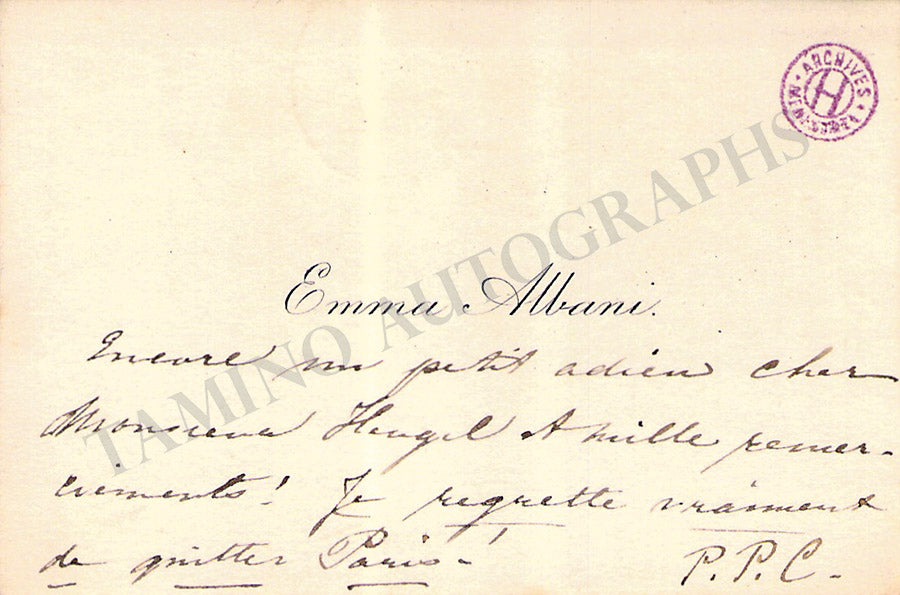 ARCHIVES
H
Emma Albani.
Encore un petit adieu cher
Monsieur Heugel & mille remer-
ciements! Je regrette vraiment
de quitter Paris-!
P.P.C.
TAMINO AUTOGRAPHS